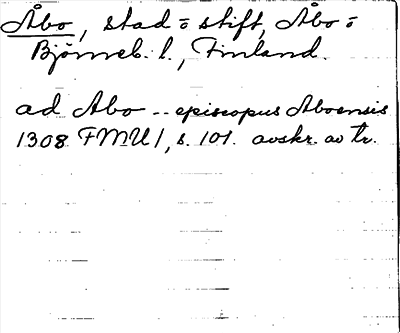 Åbo, stad o stift, Åbo o
Björneb. l., Finland.
ad Abo -- episcopus Aboensis
1308 FMU 1, s. 101. avskr. av tr.